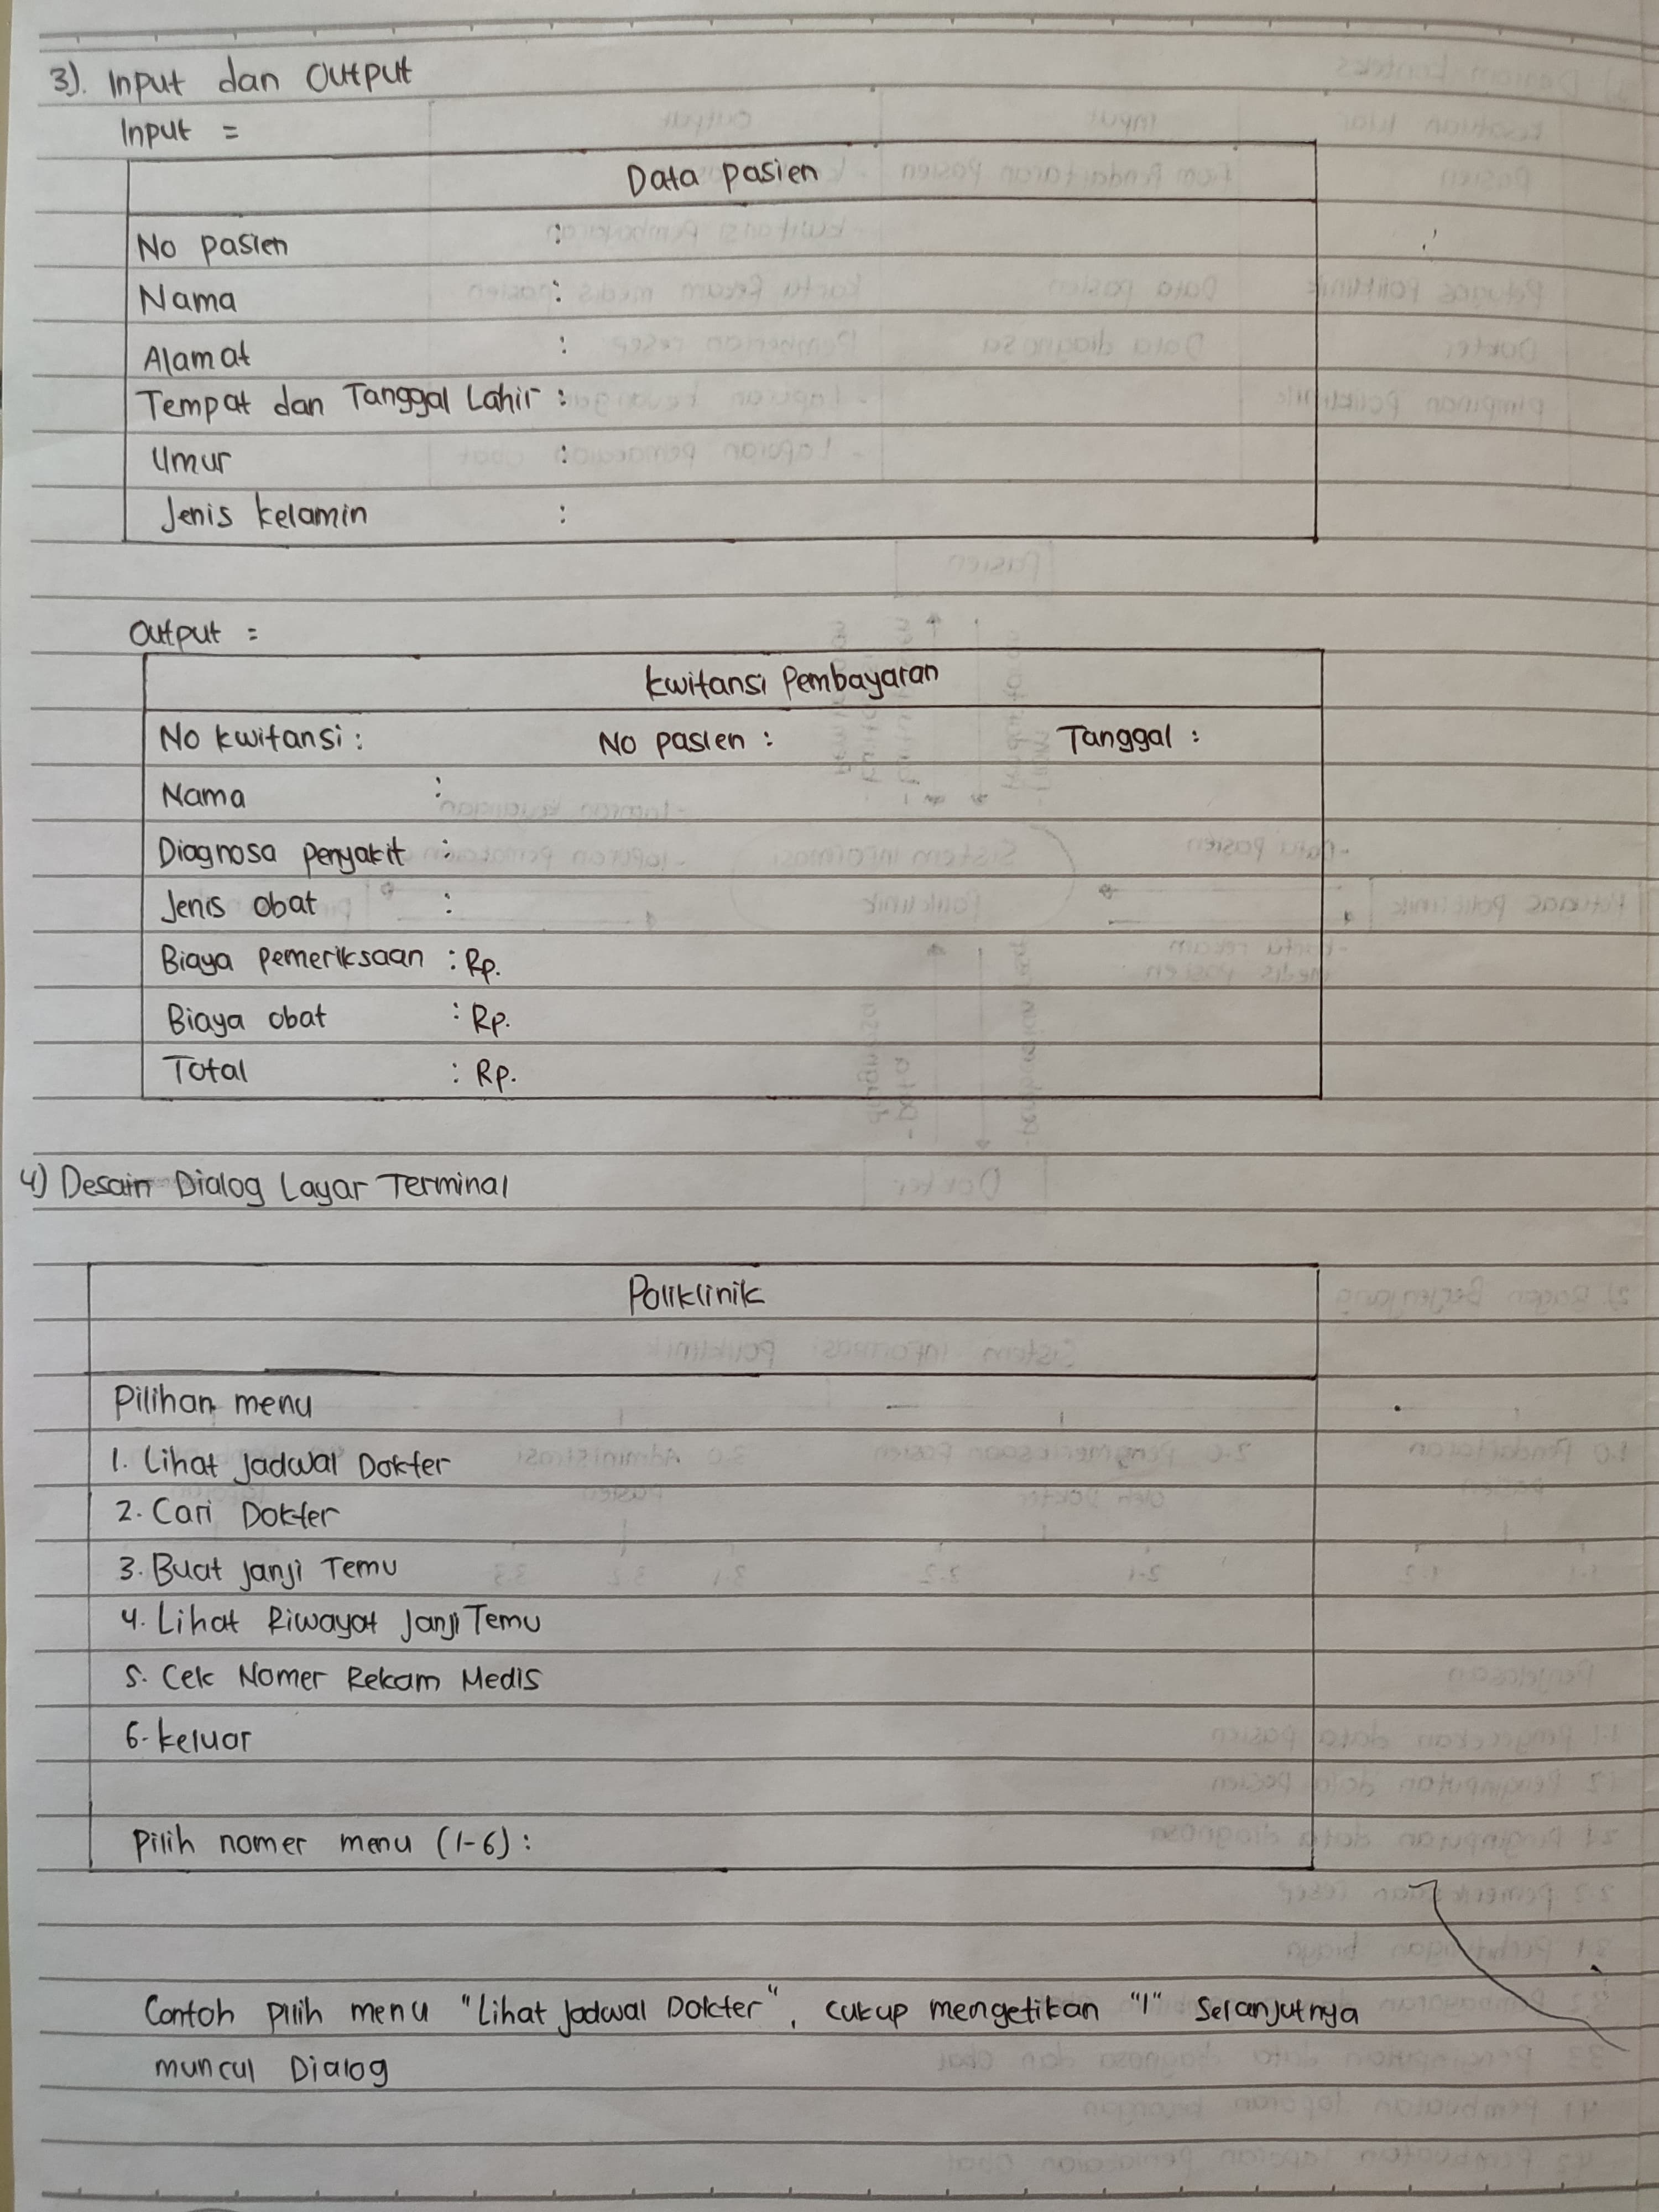 3). Input dan Output
Input =
Data pasien
No pasien :
Nama :
Alamat :
Tempat dan Tanggal Lahir :
Umur :
Jenis kelamin :
Output =
Kwitansi Pembayaran
No kwitansi : No pasien : Tanggal :
Nama :
Diagnosa penyakit :
Jenis obat :
Biaya pemeriksaan : Rp.
Biaya obat : Rp.
Total : Rp.
4) Desain Dialog Layar Terminal
Poliklinik
Pilihan menu
1. Lihat Jadwal Dokter
2. Cari Dokter
3. Buat Janji Temu
4. Lihat Riwayat Janji Temu
5. Cek Nomer Rekam Medis
6. Keluar
Pilih nomer menu (1-6) :
Contoh pilih menu "Lihat Jadwal Dokter", cukup mengetikan "1" Selanjutnya
muncul Dialog